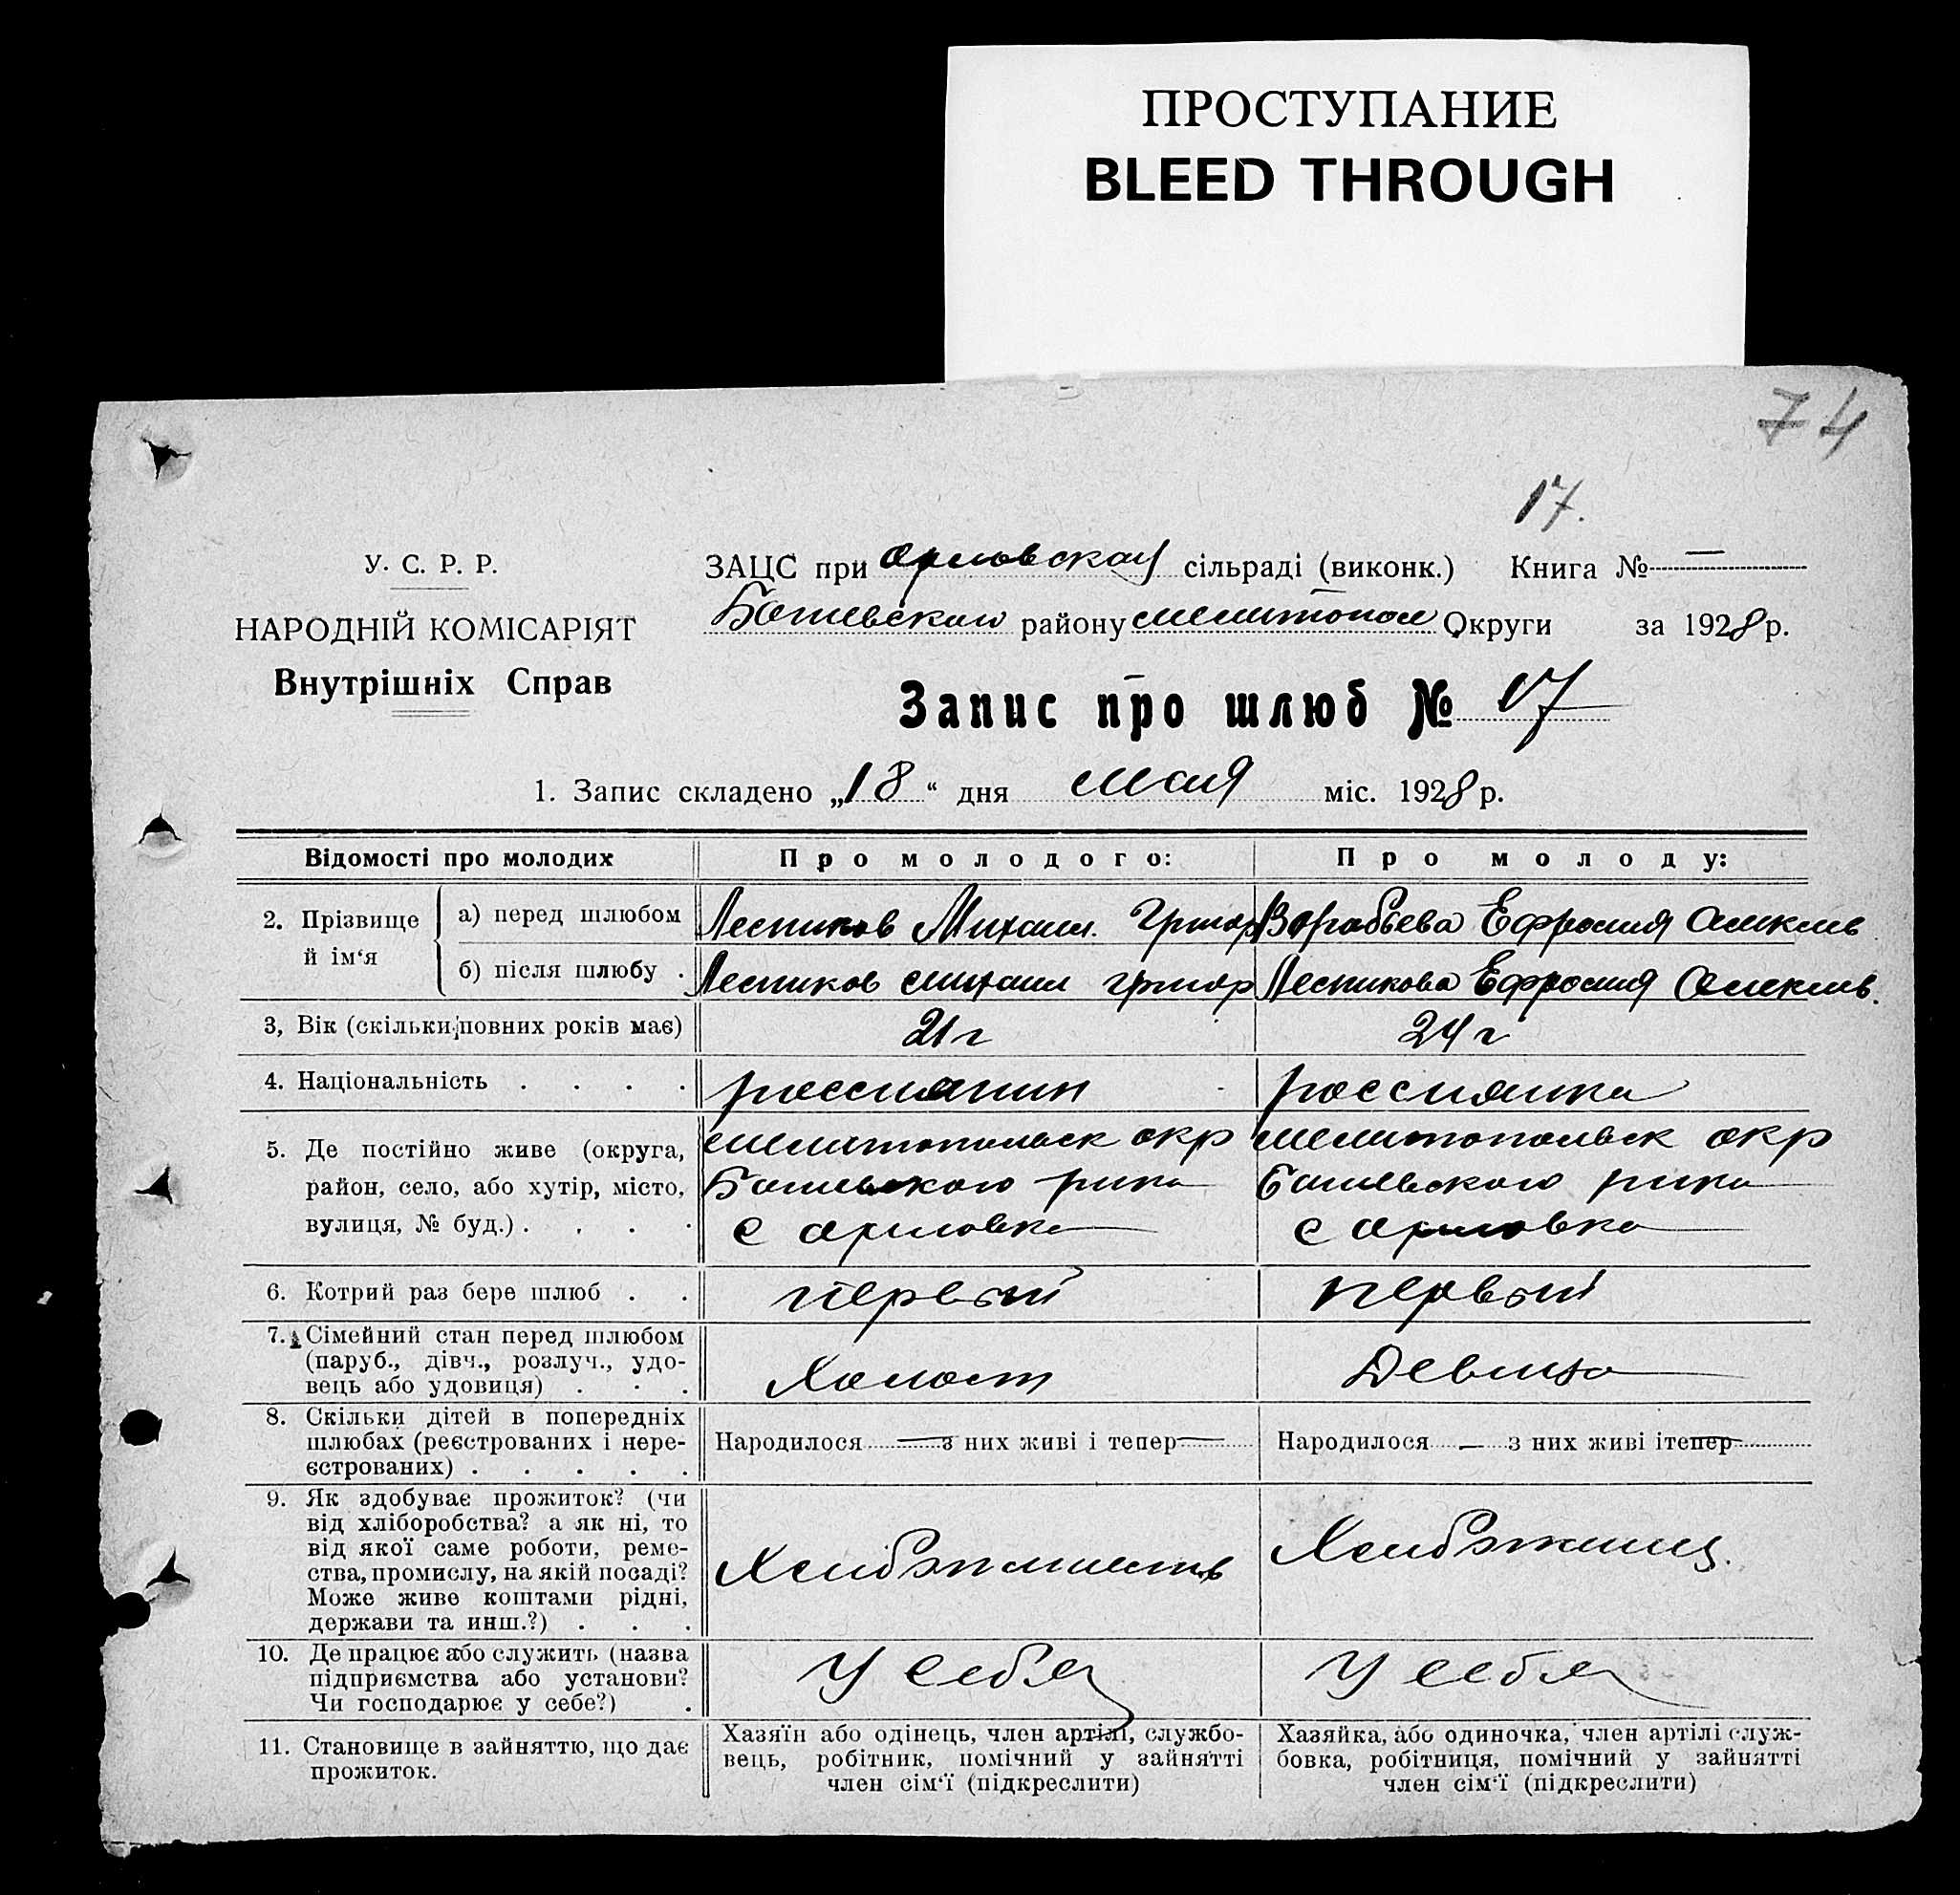 ПРОСТУПАНИЕ
BLEED THROUGH
74
17.
У. С. Р. Р.
НАРОДНІЙ КОМІСАРІЯТ
Внутрішніх Справ
ЗАЦС при Орловской сільраді (виконк.) Книга № —
району Мелитопол Округи за 1928 р.
Запис про шлюб № 17
1. Запис складено „18“ дня мая міс. 1928 р.
Відомості про молодих
Про молодого:
Про молоду:
2. Прізвище й ім‘я
а) перед шлюбом
Лесников Михаил Григор
Воробьева Ефросиия Алексеев
б) після шлюбу .
Лесников Михаил Григор
Лесникова Ефросиия Алексеев.
3, Вік (скільки повних років має)
21 г
24 г
4. Національність . . . .
россиянин
россиянка
5. Де постійно живе (округа,
район, село, або хутір, місто,
вулиця, № буд.) . . . .
Мелитопольск окр
рика
с Орловка
Мелитопольск окр
рика
с Орловка
6. Котрий раз бере шлюб . .
первый
первый
7. Сімейний стан перед шлюбом
(паруб., дівч., розлуч., удо-
вець або удовиця) . . .
Холост
Девица
8. Скільки дітей в попередніх
шлюбах (реєстрованих і нере-
єстрованих) . . . . .
Народилося — з них живі і тепер —
Народилося — з них живі ітепер —
9. Як здобуває прожиток? (чи
від хліборобства? а як ні, то
від якої саме роботи, реме-
ства, промислу, на якій посаді?
Може живе коштами рідні,
держави та инш.?) . . .
10. Де працює або служить (назва
підприємства або установи?
Чи господарює у себе?) .
У себя
У себя
11. Становище в зайняттю, що дає
прожиток.
Хазяїн або одінець, член артілі, службо-
вець, робітник, помічний у зайнятті
член сім‘ї (підкреслити)
Хазяйка, або одиночка, член артілі служ-
бовка, робітниця, помічний у зайнятті
член сім‘ї (підкреслити)